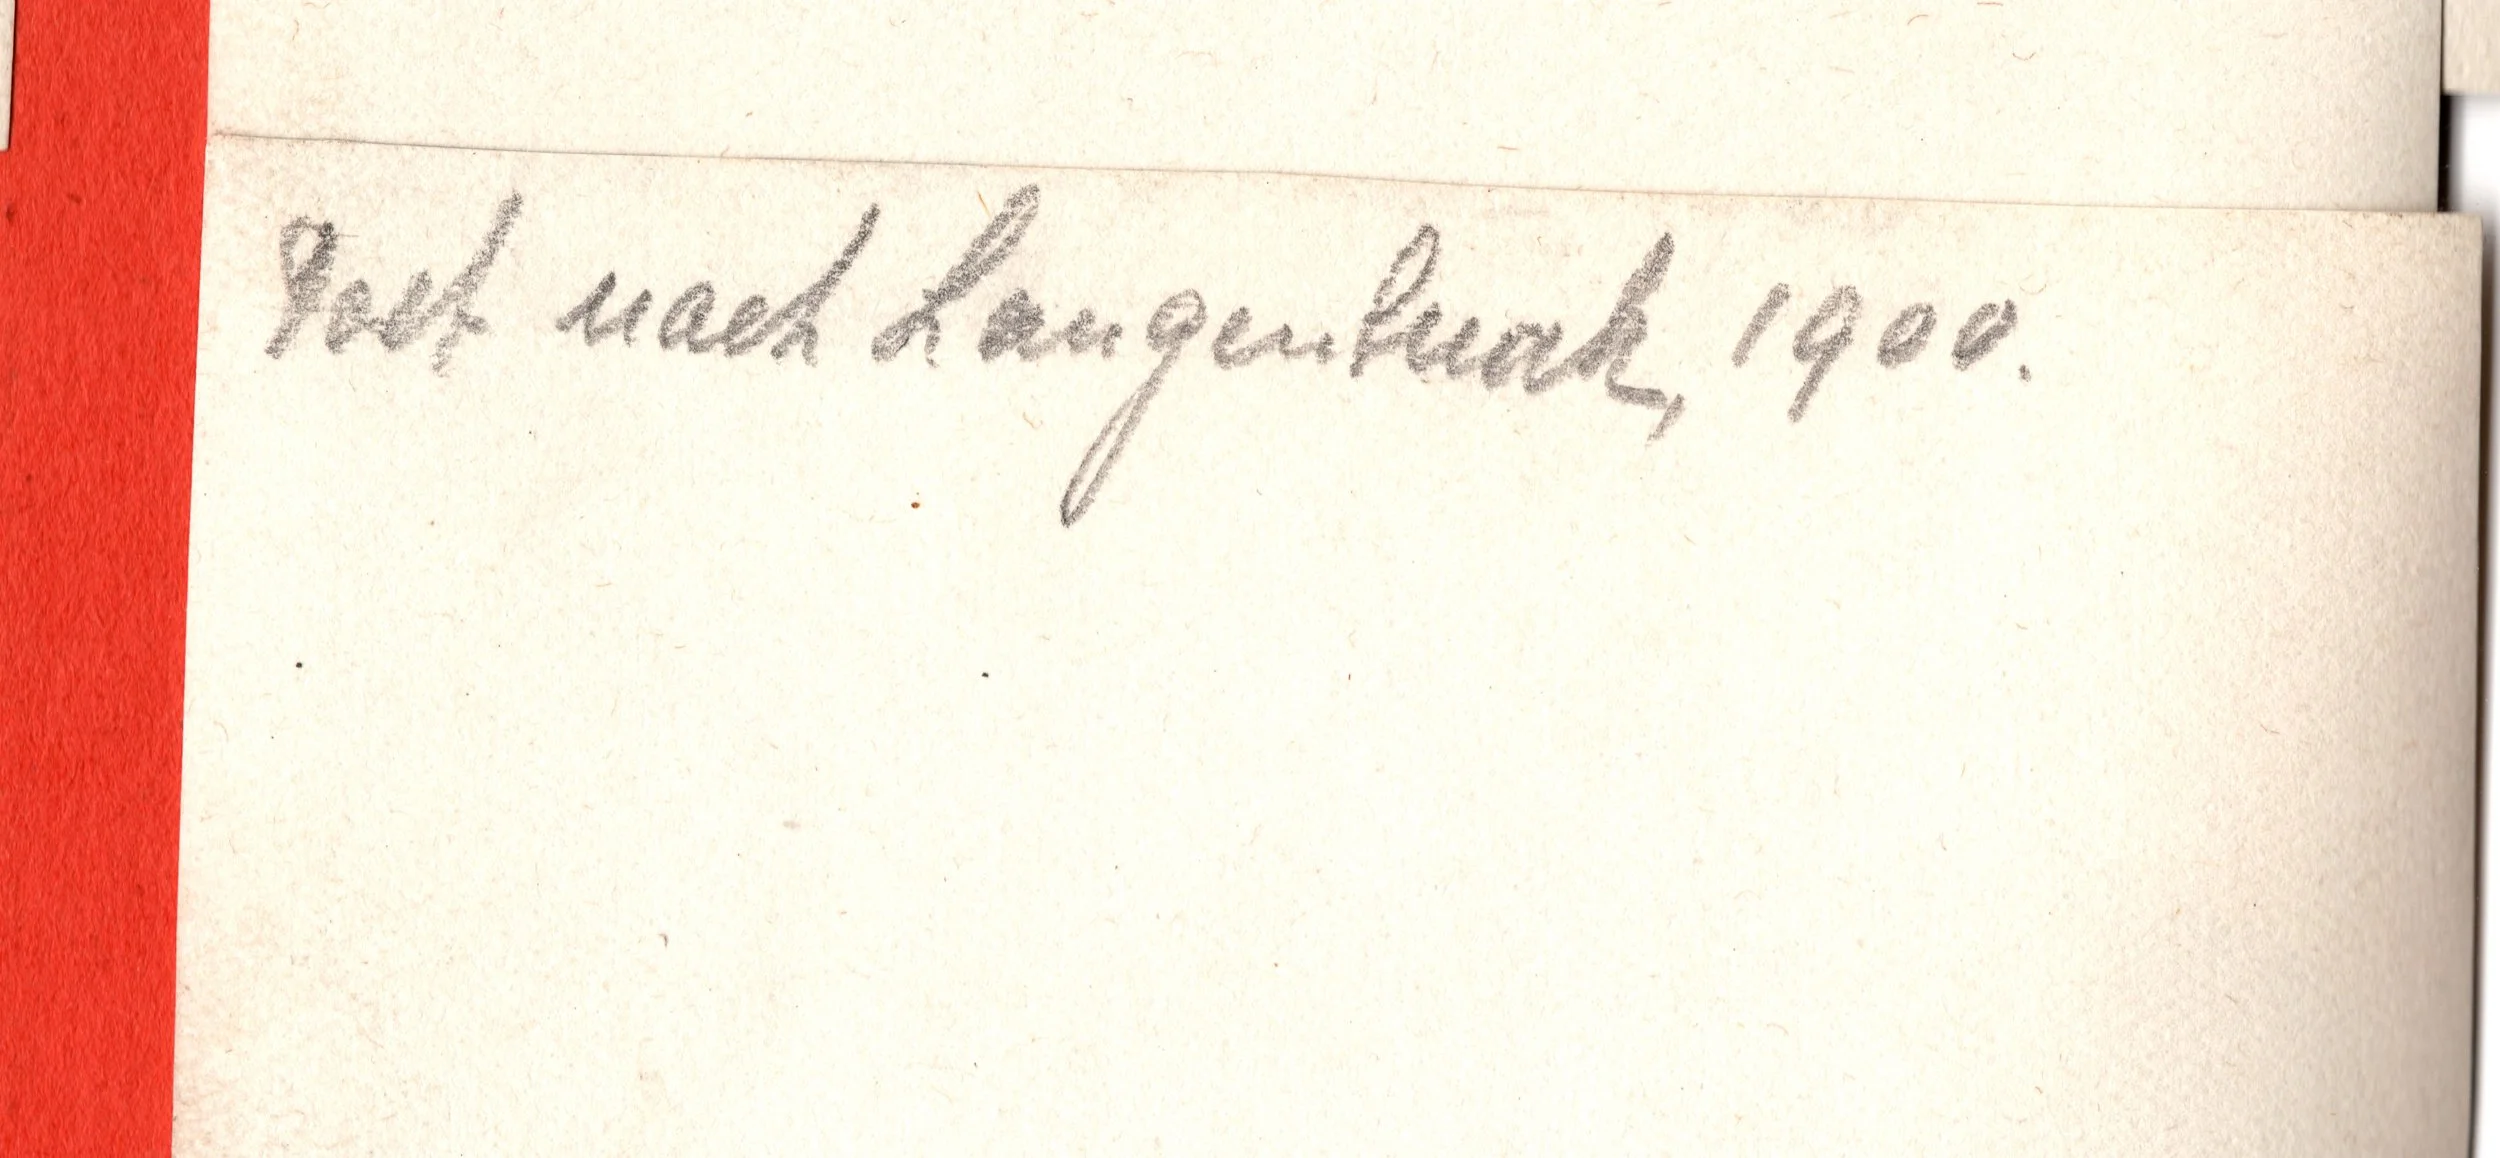 Post nach Langenbruck, 1900.